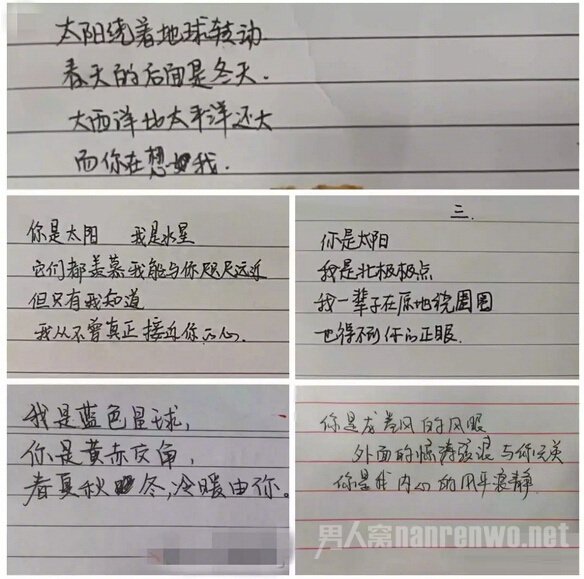 太阳绕着地球转动
春天的后面是冬天.
大西洋比太平洋还大
而你在想我.
你是太阳 我是水星
它们都羡慕我能与你咫尺远近
但只有我知道
我从不曾真正接近你的心.
三.
你是太阳
我是北极极点
我一辈子在原地绕圈圈
也得不到你的正眼.
我是蓝色星球,
你是黄赤交角,
春夏秋冬,冷暖由你。
你是龙卷风的风眼
外面的惊涛骇浪与你无关
你是我内心的风平浪静
男人窝nanrenwo.net